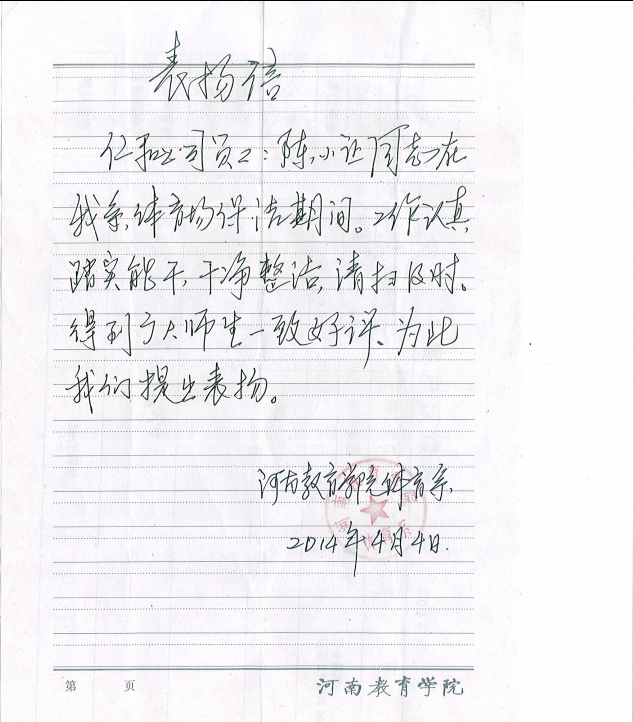 表扬信
仁和公司员工:陈小让同志在
我系体育场保洁期间。工作认真
踏实能干,干净整洁,请扫及时。
得到广大师生一致好评、为此
我们提出表扬。
河南教育学院体育系
2014年4月4日.
第 页
河南教育学院